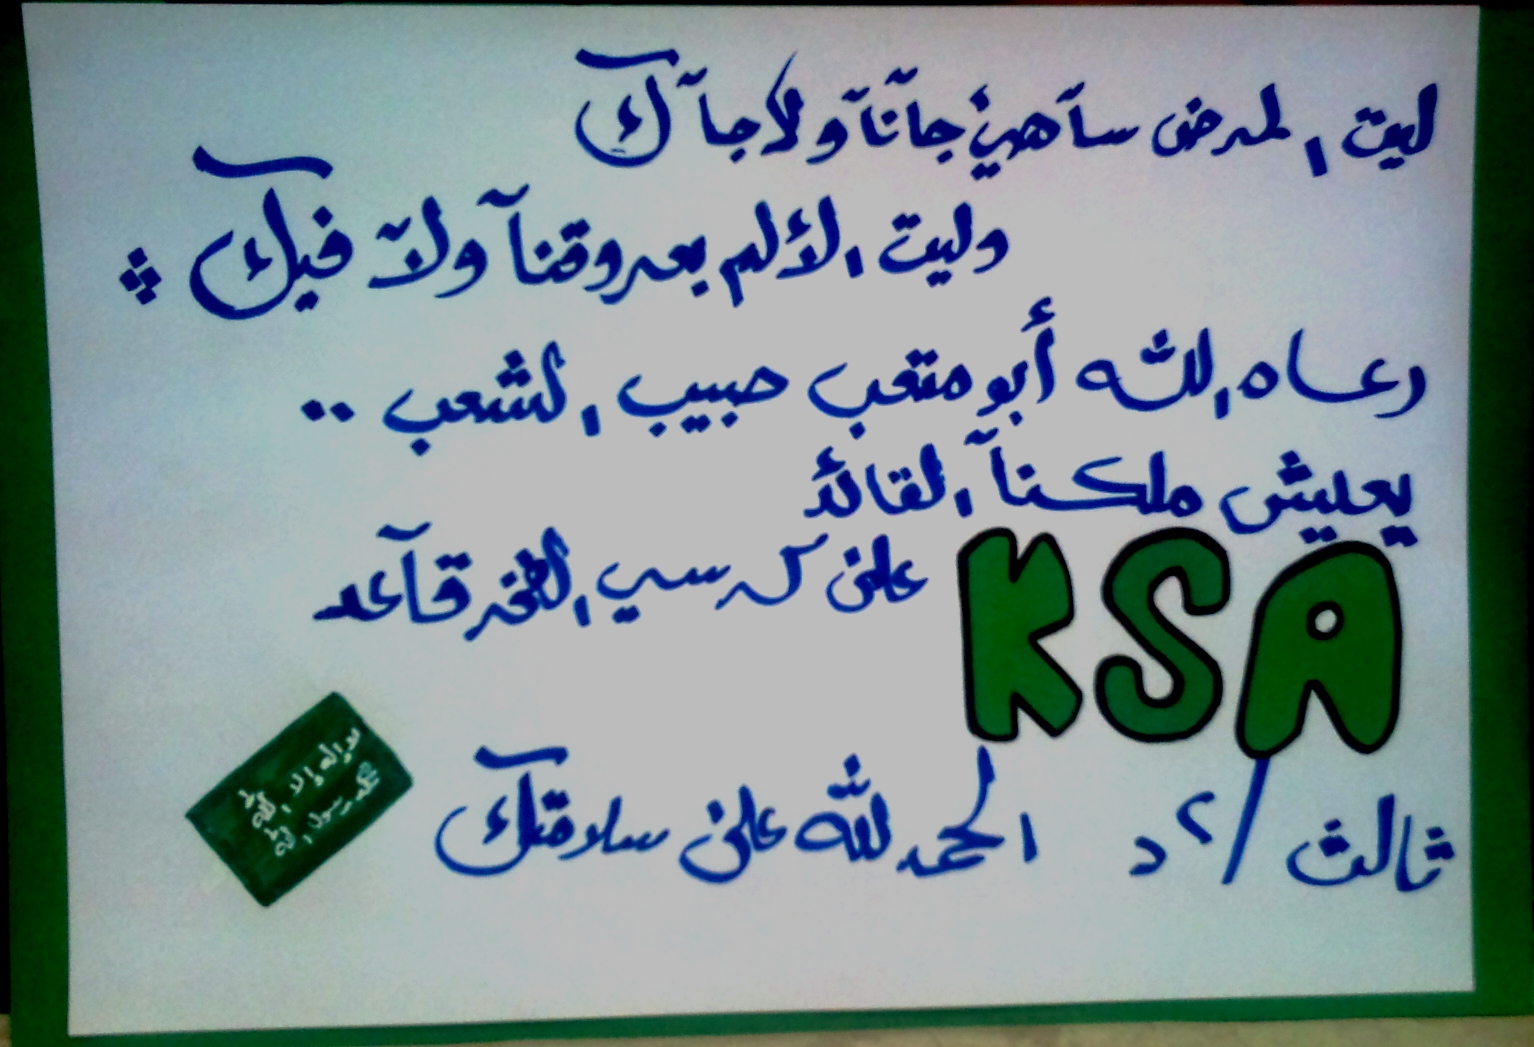 ليت المرض ساهي جانا ولا جاك
وليت الألم بعروقنا ولا فيك
رعاه الله أبو متعب حبيب الشعب ..
يعيش ملكنا القائد
على كرسي الفخر قاعد
KSA
لا إله إلا الله
محمد رسول الله
ثالث / ٢ د الحمدلله على سلامتك